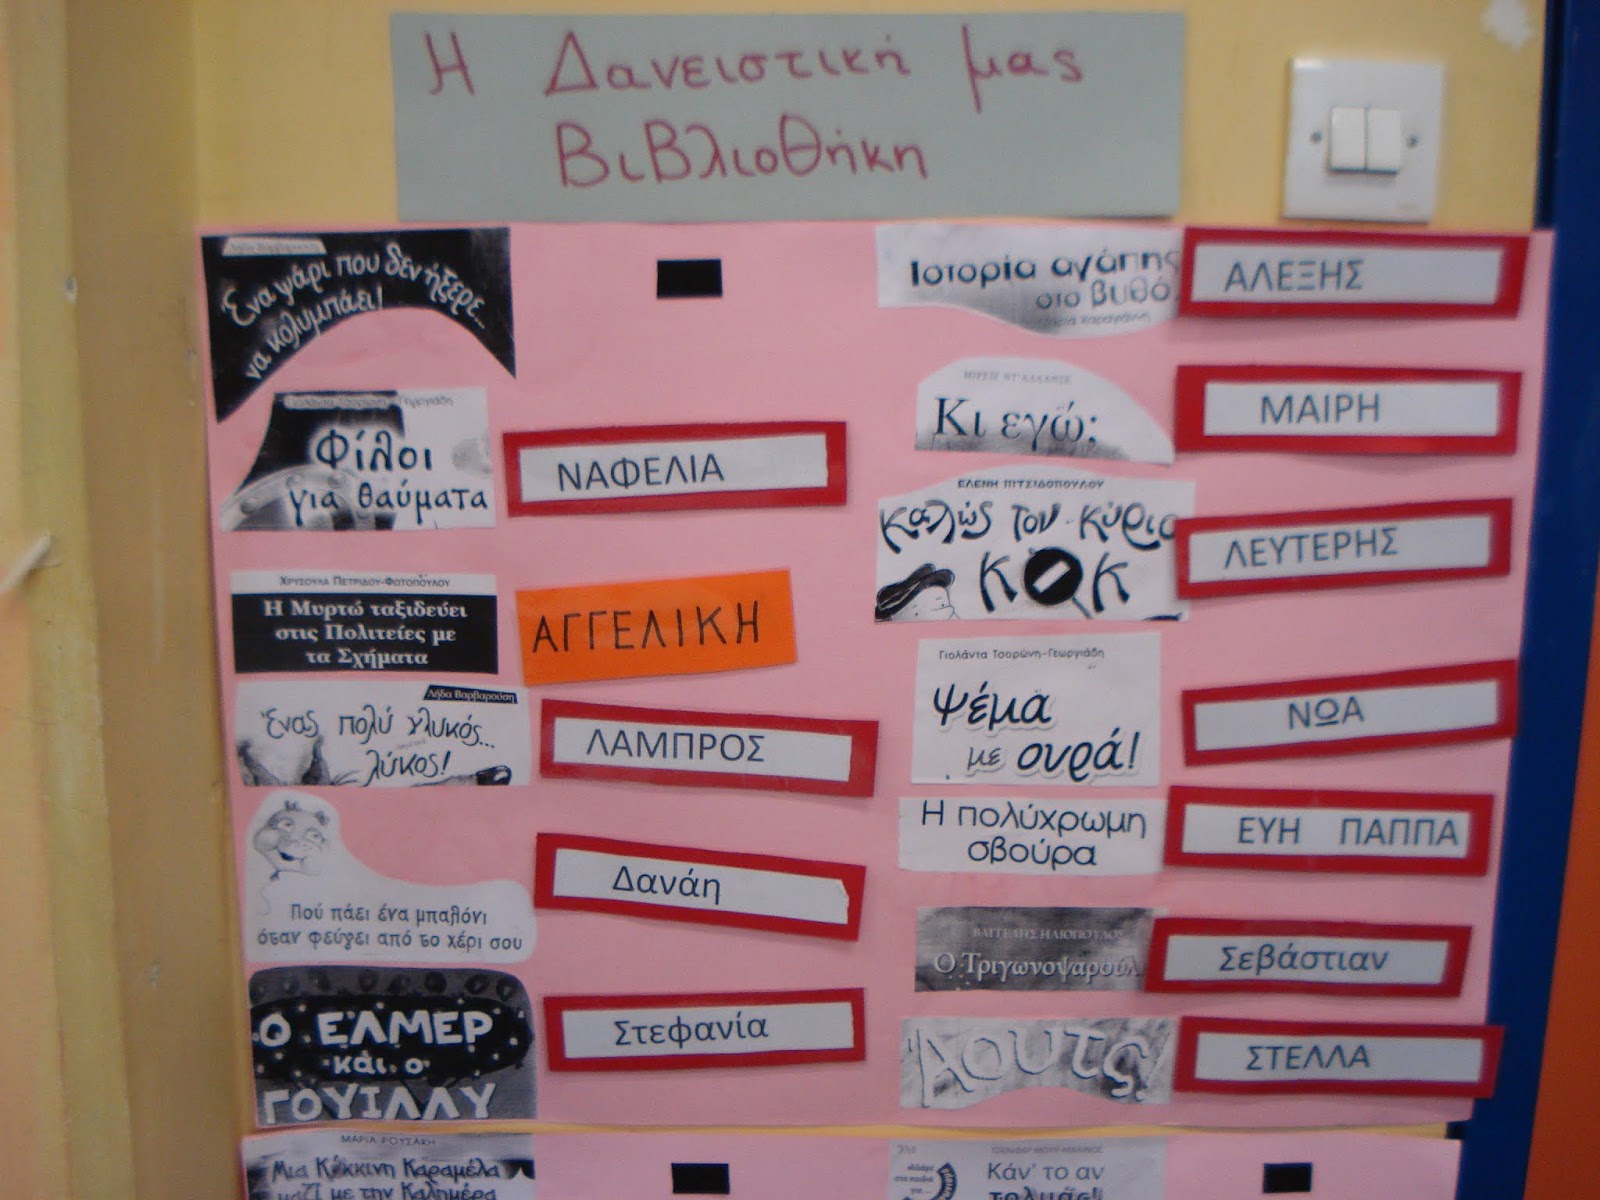 Η Δανειστική μας
Βιβλιοθήκη
Λήδα Βαρβαρούση
Ένα ψάρι που δεν ήξερε...
να κολυμπάει!
Γιολάντα Τσορώνη-Γεωργιάδη
Φίλοι
για θαύματα
ΝΑΦΕΛΙΑ
ΧΡΥΣΟΥΛΑ ΠΕΤΡΙΔΟΥ-ΦΩΤΟΠΟΥΛΟΥ
Η Μυρτώ ταξιδεύει
στις Πολιτείες με
τα Σχήματα
ΑΓΓΕΛΙΚΗ
Λήδα Βαρβαρούση
Ένας πολύ γλυκός...
λύκος!
ΛΑΜΠΡΟΣ
Πού πάει ένα μπαλόνι
όταν φεύγει από το χέρι σου
Δανάη
Ο ΕΛΜΕΡ
και ο
ΓΟΥΙΛΛΥ
Στεφανία
Ιστορία αγάπης
στο βυθό
Καραγιάννη
ΑΛΕΞΗΣ
Κι εγώ;
ΜΑΙΡΗ
ΕΛΕΝΗ ΠΙΤΣΙΔΟΠΟΥΛΟΥ
καλώς τον κύριο
ΚΟΚ
ΛΕΥΤΕΡΗΣ
Γιολάντα Τσορώνη-Γεωργιάδη
ψέμα
με ουρά!
ΝΩΑ
Η πολύχρωμη
σβούρα
ΕΥΗ ΠΑΠΠΑ
ΒΑΓΓΕΛΗΣ ΗΛΙΟΠΟΥΛΟΣ
Ο Τριγωνοψαρούλ
Σεβάστιαν
Άουτς!
ΣΤΕΛΛΑ
ΜΑΡΙΑ ΡΟΥΣΑΚΗ
Μια Κόκκινη Καραμέλα
μαζί με την Καλημέρα
Κάν' το αν
τολμάς!